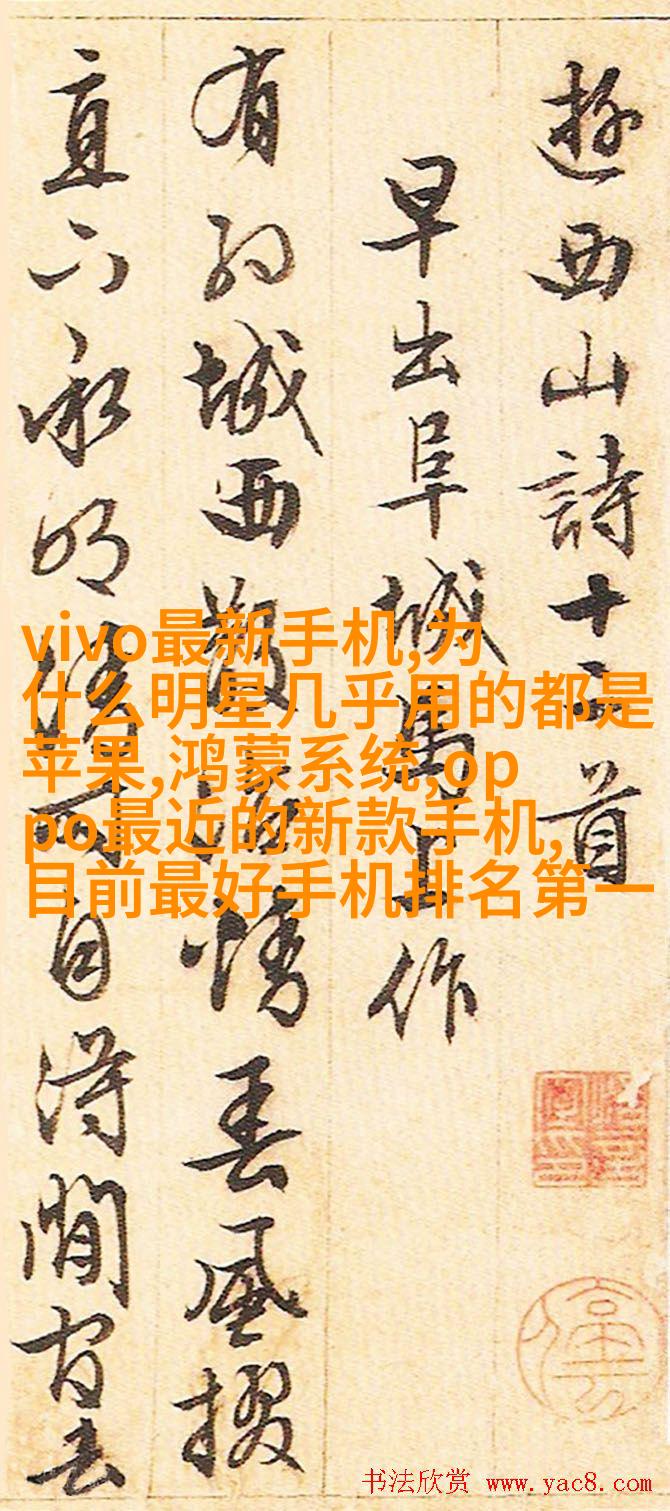 遊西山詩十二首
早出阜城馬上作
有約城西散冶情春風掇
直下承明自得閒官去
vivo最新手机,为
什么明星几乎用的都是
苹果,鸿蒙系统,op
po最近的新款手机,
目前最好手机排名第一
书法欣赏 www.yac8.com